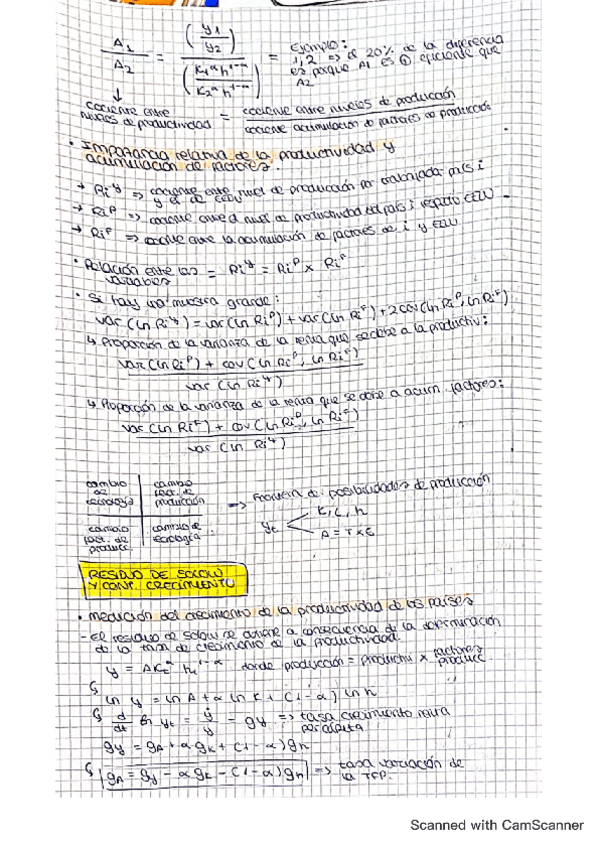 A1/A2 = (y1/y2) / (K1^α h^1-α / K2^α h^1-α) = Ejemplo:
1,2 => el 20% de la diferencia
es porque A1 es ⊕ eficiente que
A2
↓
cociente entre niveles de productividad = cociente entre niveles de producción / cociente acumulación de factores de producción
• Importancia relativa de la productividad y
acumulación de factores.
→ Ri^y => cociente entre nivel de producción por trabajador país i
y el de EEUU
→ Ri^P => cociente entre el nivel de productividad del país i respecto EEUU
→ Ri^F => cociente entre la acumulación de factores de i y EEUU
• Relación entre las variables = Ri^y = Ri^P x Ri^F
• Si hay una muestra grande:
var (ln Ri^y) = var (ln Ri^P) + var (ln Ri^F) + 2 cov (ln Ri^P, ln Ri^F)
↳ Proporción de la varianza de la renta que se debe a la productiv:
var (ln Ri^P) + cov (ln Ri^P, ln Ri^F)
var (ln Ri^y)
↳ Proporción de la varianza de la renta que se debe a acum. factores:
var (ln Ri^F) + cov (ln Ri^P, ln Ri^F)
var (ln Ri^y)
cambio de tecnología | cambio fact. de producción
cambio fact. de producc | cambio de tecnología
=> Frontera de posibilidades de producción
yt < K, L, h
A = T x E
RESIDUO DE SOLOW
Y CONT. CRECIMIENTO
• Medición del crecimiento de la productividad de los países
- El residuo de Solow se obtiene a consecuencia de la determinación
de la tasa de crecimiento de la productividad.
y = A Kt^α ht^1-α donde producción = productiv x factores producc.
ln y = ln A + α ln K + (1-α) ln h
d/dt ln yt = ẏ/y = gy => tasa crecimiento renta
per cápita
gy = gA + α gK + (1-α) gh
gA = gy - α gK - (1-α) gh => tasa variación de
la TFP.
Scanned with CamScanner